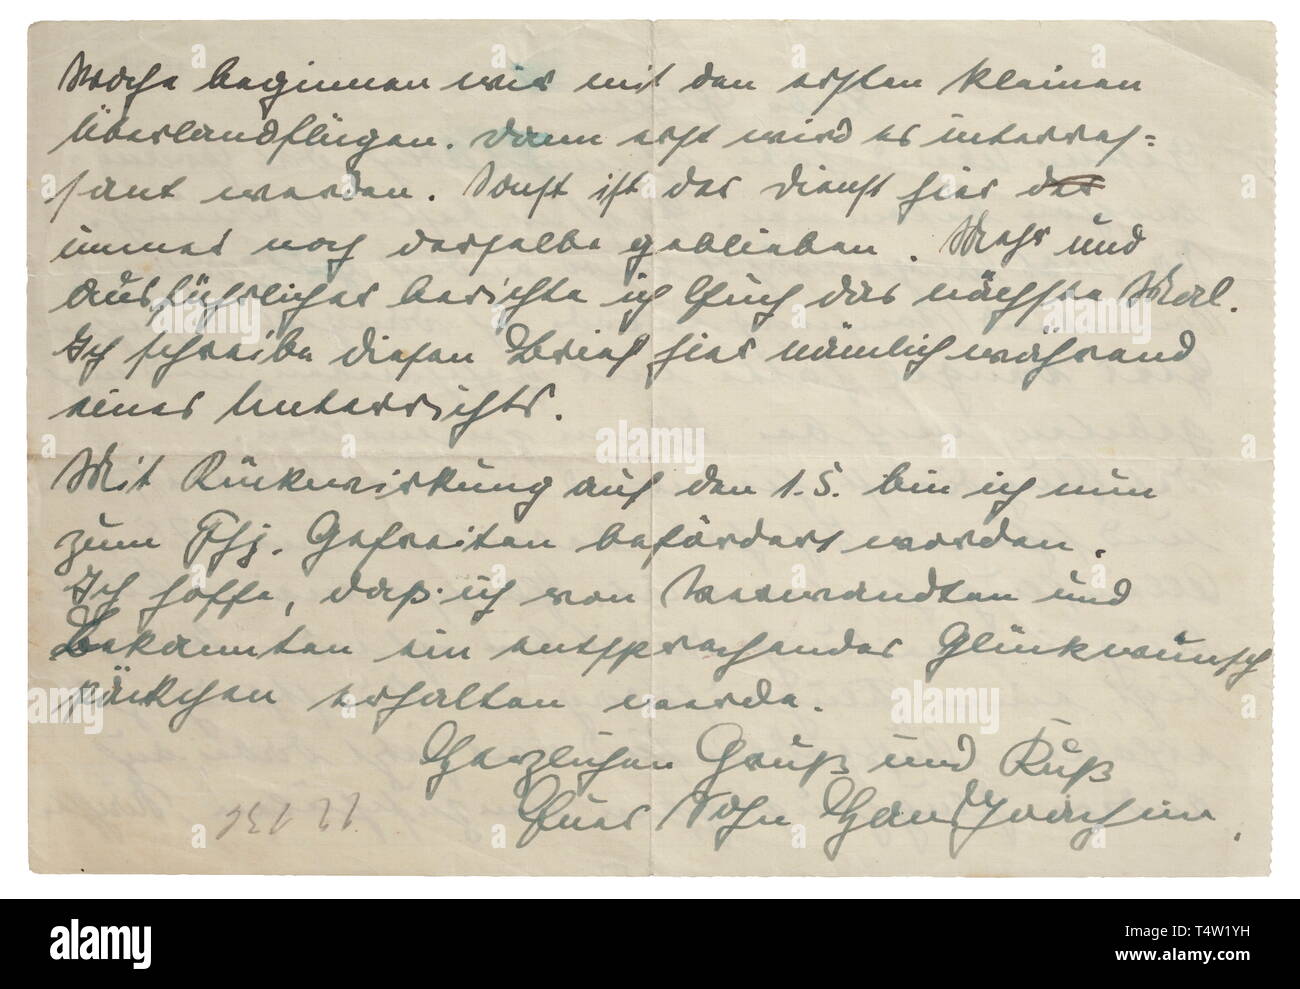 Woche beginnen wir mit den ersten kleinen
Überlandflügen. Dann erst wird es interres=
sant werden. Sonst ist der Dienst hier der
immer noch derselbe geblieben. Mehr und
ausführlicher berichte ich Euch das nächste Mal.
Ich schreibe diesen Brief hier nämlich während
eines Unterrichts.
Mit Rückwirkung auf den 1.5. bin ich nun
zum Fhj. Gefreiten befördert worden.
Ich hoffe, daß ich von Verwandten und
Bekannten ein entsprechendes Glückwunsch
päckchen erhalten werde.
Herzlichen Gruß und Kuß
Euer Sohn Hans Joachim.
alamy
Image ID: T4W1YH
www.alamy.com